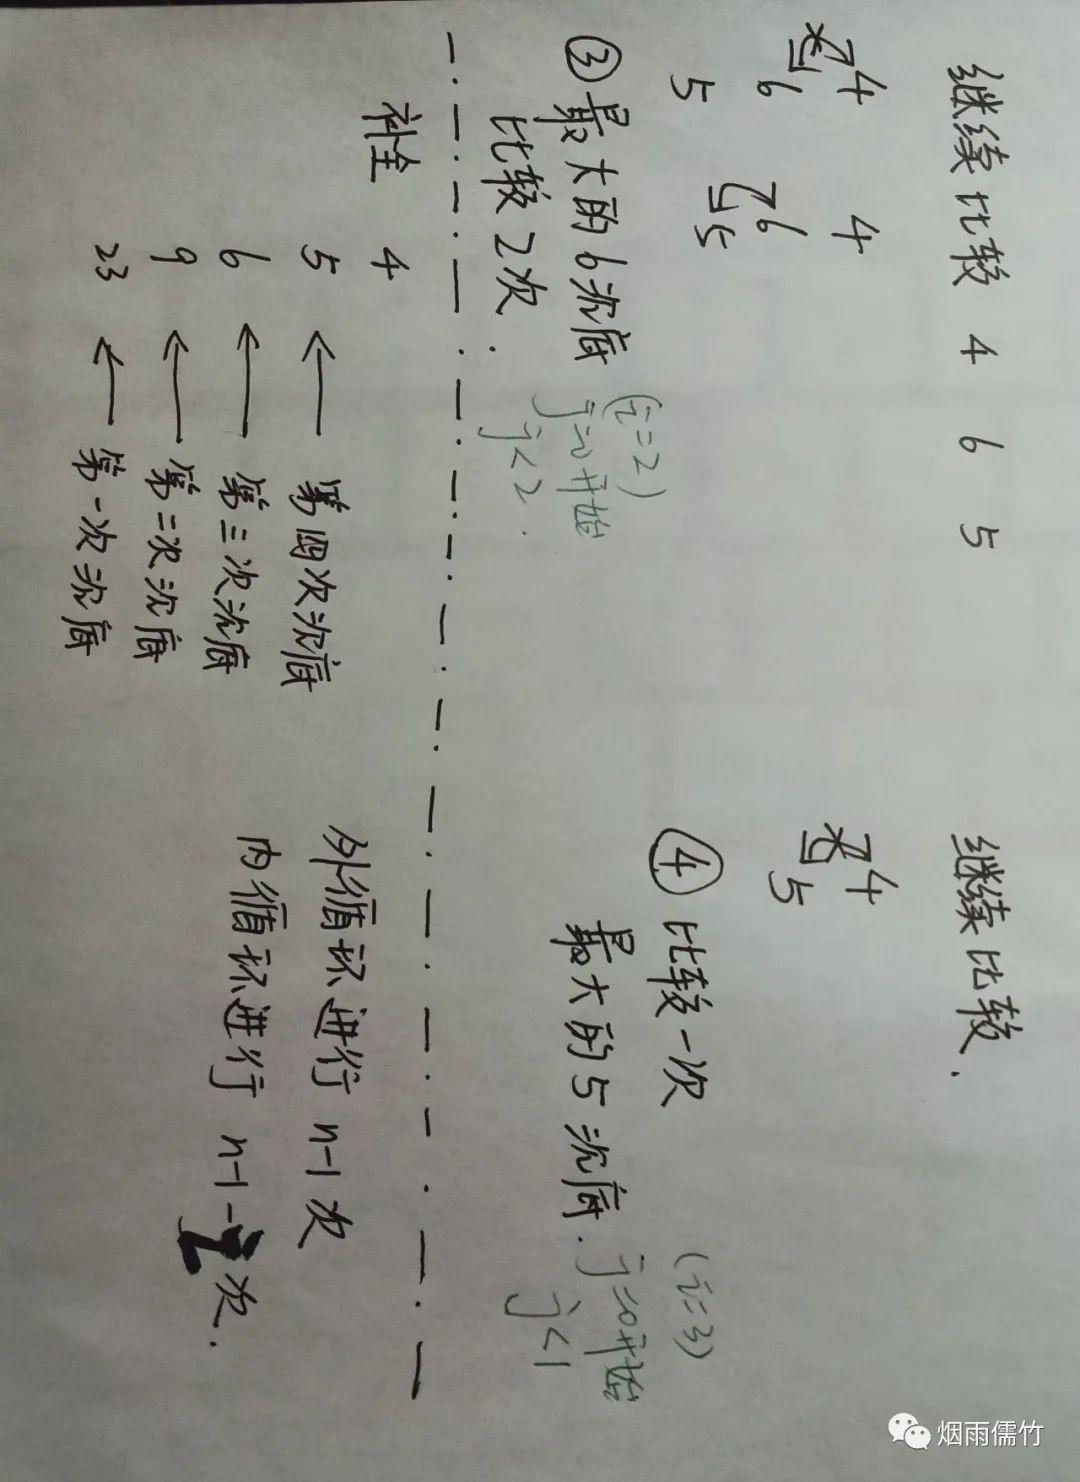 继续比较 4 6 5
4 4
6 6
5 5
③最大的6沉底 (i=2)
比较2次. j=0开始
j<2.
继续比较.
4
5
④ 比较一次 (i=3)
最大的5沉底. j=0开始
j<1
补全 4
5 ← 第四次沉底
6 ← 第三次沉底
9 ← 第二次沉底
23 ← 第一次沉底
外循环进行 n-1次
内循环进行 n-1-i次.
烟雨儒竹